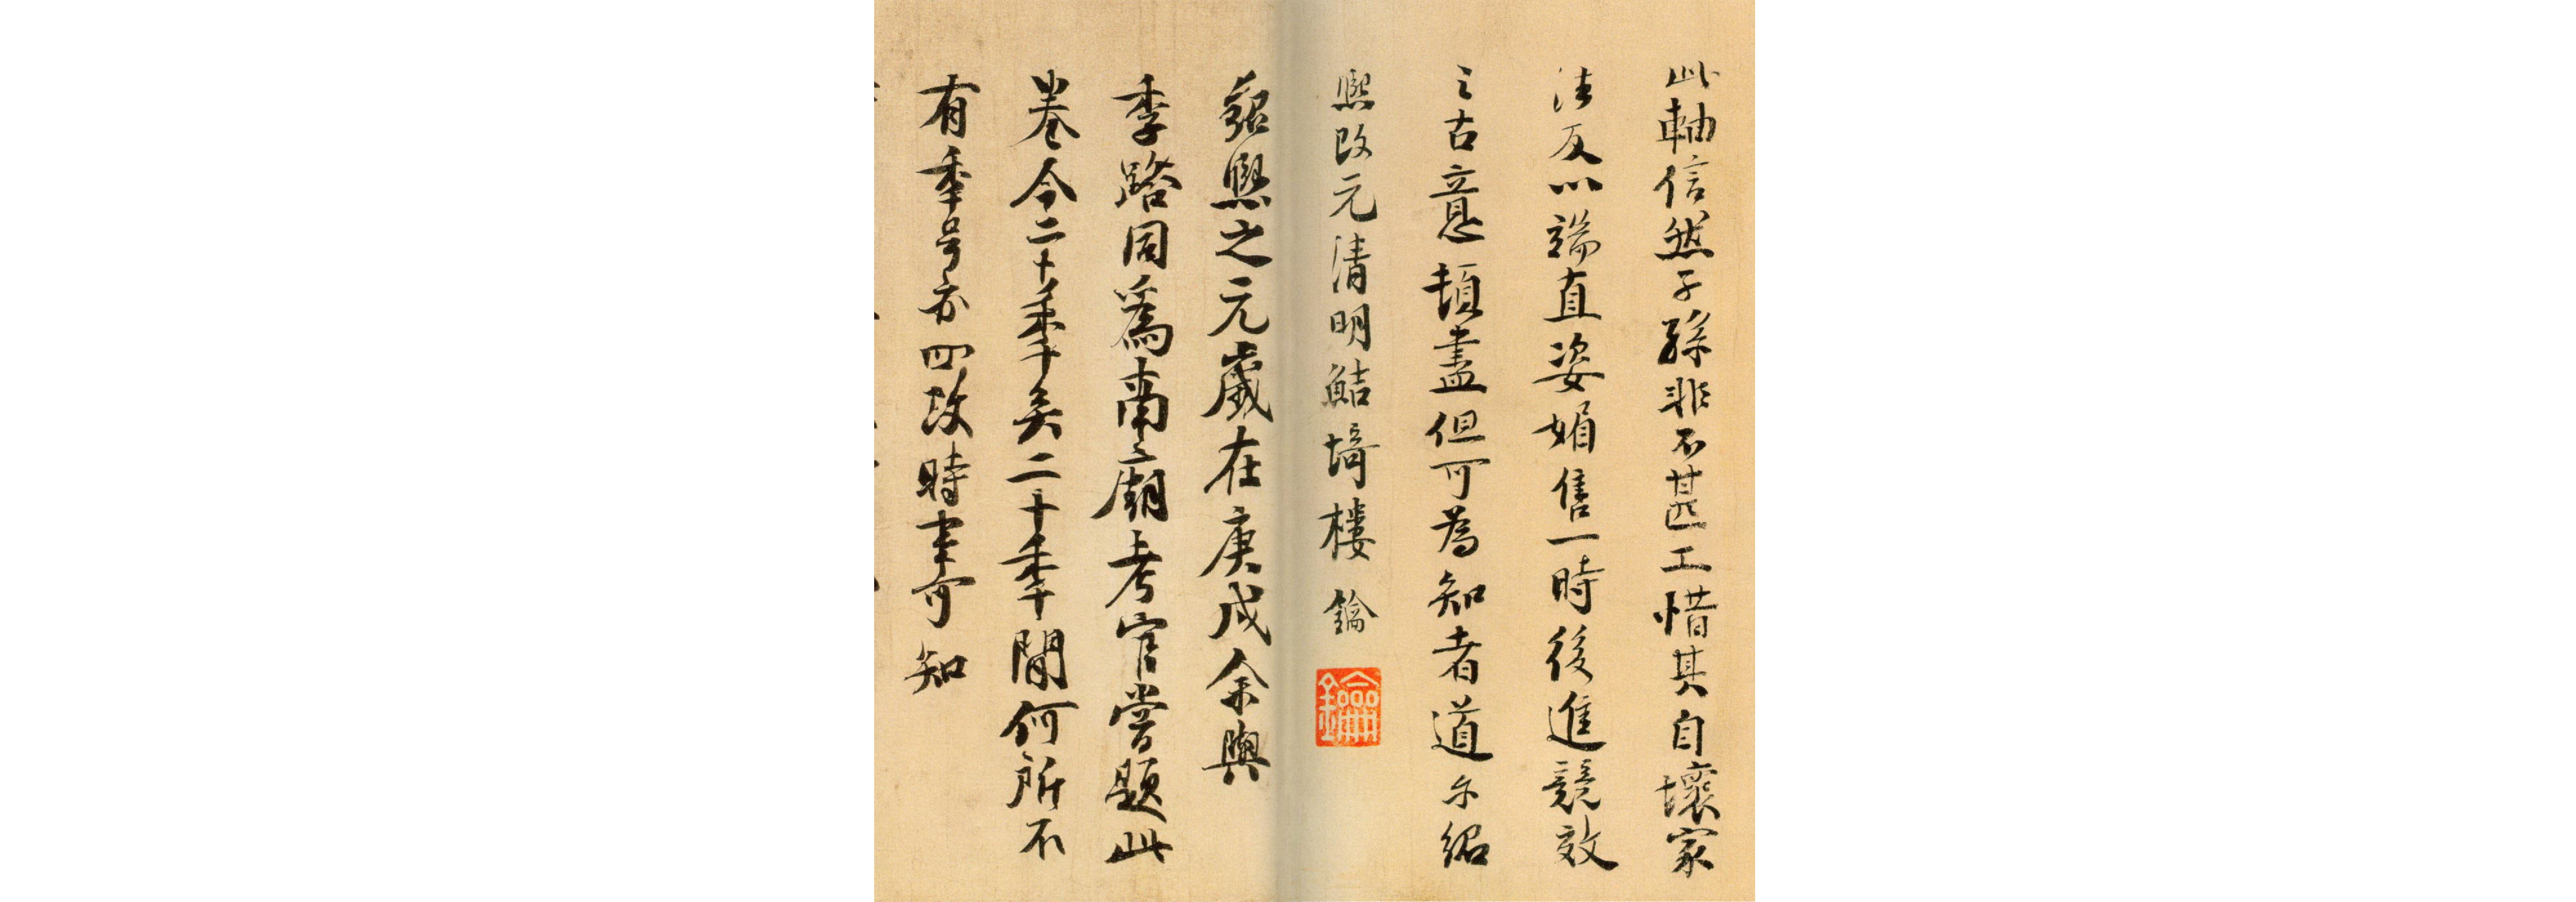 此軸信然子孫非不甚工惜其自壞家
法反以端直姿媚售一時後進競效
之古意頓盡但可為知者道尓紹
熙改元清明鮚埼樓鑰
鑰
紹熙之元歲在庚戌余與
季路同爲南廟考官嘗題此
卷今二十秊矣二十秊間何所不
有秊号亦四改時事可知